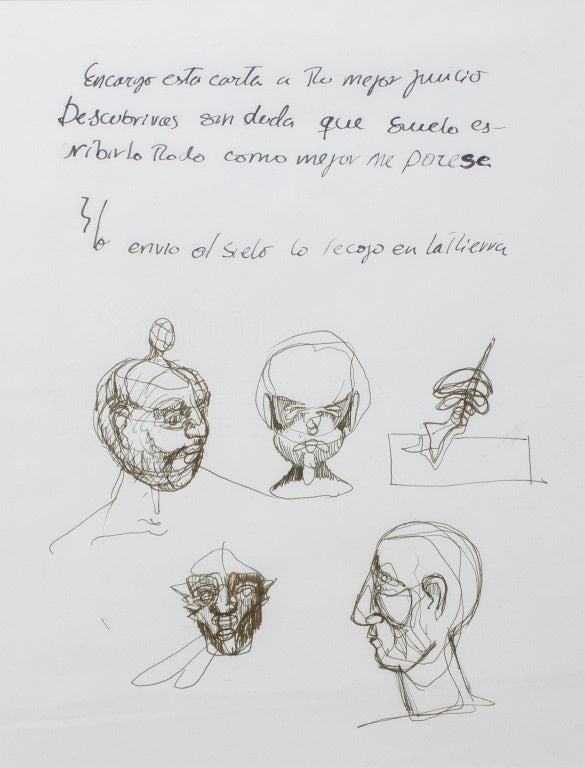 Encargo esta carta a Tu mejor juicio
Descubriras sin duda que suelo es-
kribirlo Todo como mejor me parese
Yo envio al sielo lo recojo en la Tierra